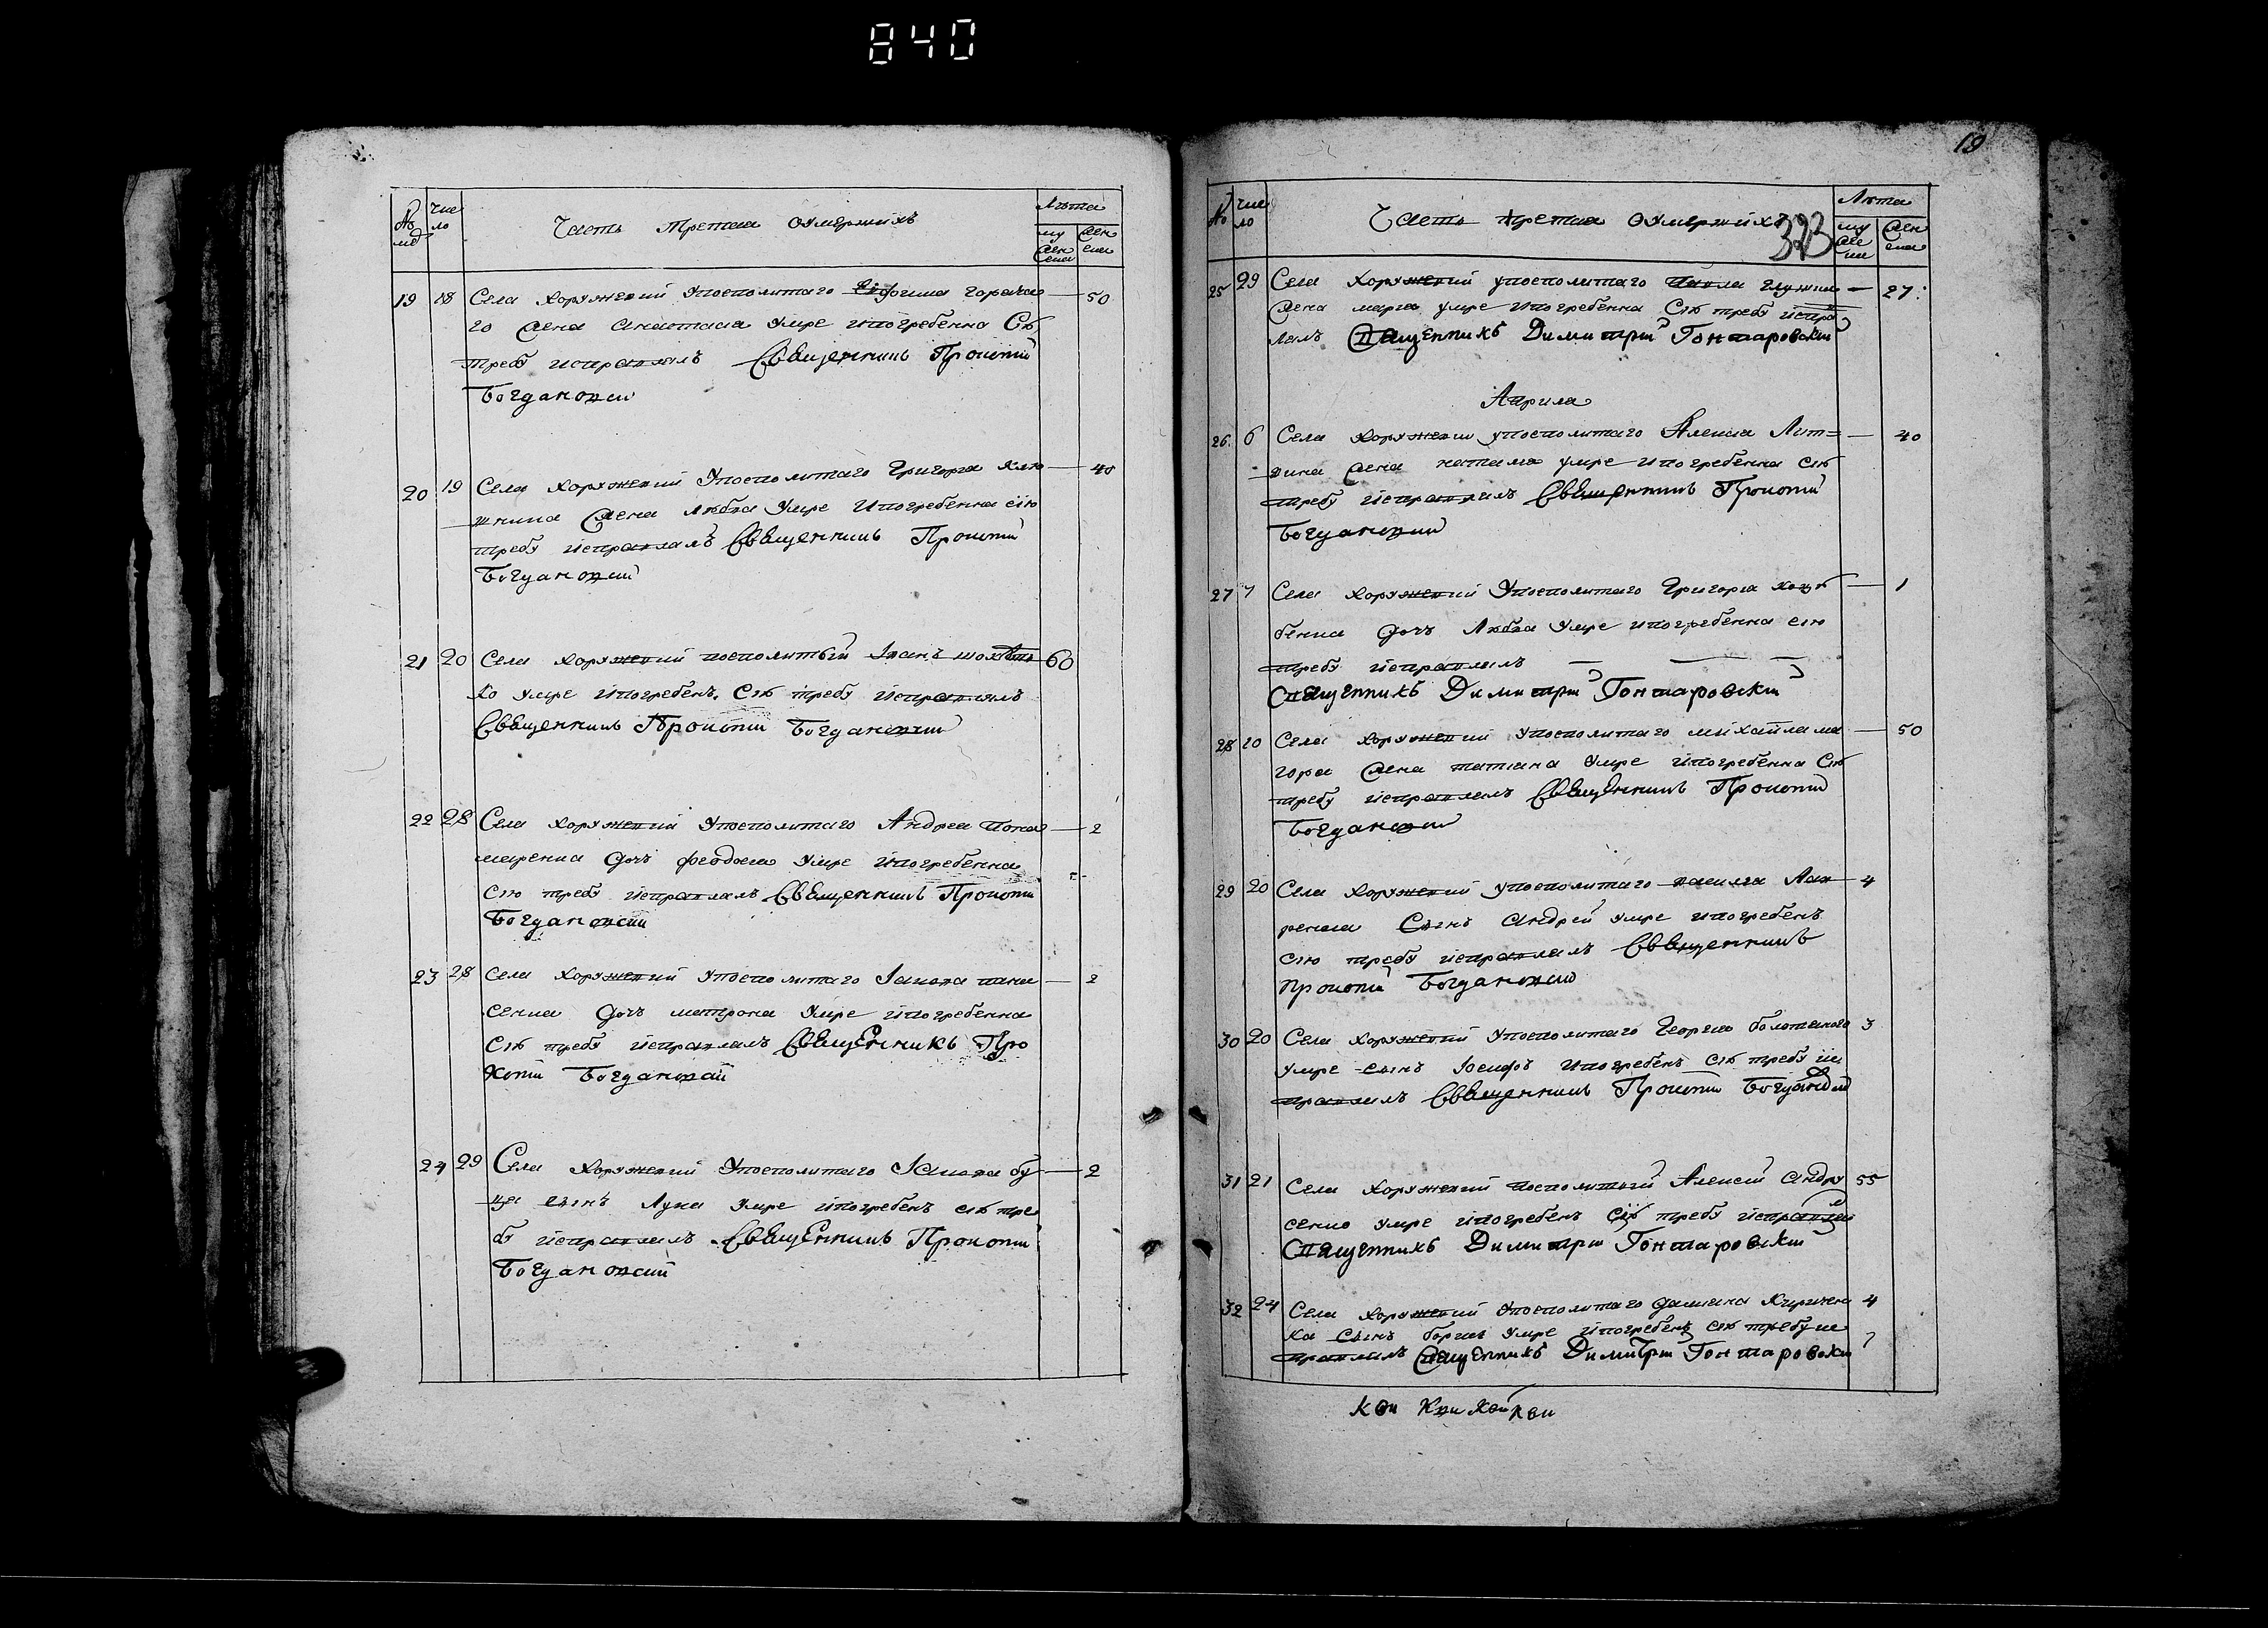 840
Числo
Часть третая оумершихъ
Лѣта
мужеска
женска
19 18 Села Хоружевки упосполитаго Евфима Горача — 50
го жена Анастасиа умре ипогребенна Сію
требу исправлялъ Священникъ Прокопій
Богдановскій
20 19 Села Хоружевки Упосполитаго Григориа Клю — 40
шника жена Любва умре Ипогребенна сію
требу исправлялъ Священникъ Прокопій
Богдановскій
21 20 Села Хоружевки посполитый Іванъ 60
ко умре ипогребенъ Сію требу исправлялъ
Священникъ Прокопій Богдановскій
22 28 Села Хоружевки Упосполитаго Андреа Пона — 2
маренка дочь феодосиа умре ипогребенна
сію требу исправлялъ Священникъ Прокопій
Богдановскій
23 28 Села Хоружевки упосполитаго Іакова пана — 2
сенка дочь матрона умре ипогребенна
Сію требу исправлялъ Священникъ Про
копій Богдановскій
24 29 Села Хоружевки Упосполитаго Іакова бу — 2
ца сынъ Лука умре ипогребенъ сію тре
бу исправлялъ Священникъ Прокопій
Богдановскій
19
№ Число
Часть третая оумершихъ
323
Лѣта
мужески
женска
25 29 Села Хоружевки упосполитаго Павла — 27
жена мариа умре ипогребенна Сію требу исправ
лялъ Священникъ Димитрій Гонтаровскій
Априла
26 6 Села Хоружевки упосполитаго Алексіа Лит= — 40
вина жена наталиа умре ипогребенна сію
требу исправлялъ Священникъ Прокопій
Богдановскій
27 7 Села Хоружевки Упосполитаго Григориа коцю — 1
бенка дочь Любва умре ипогребенна сію
требу исправлялъ — — —
Священникъ Димитрій Гонтаровскій
28 10 Села Хоружевки Упосполитаго михаила ма — 50
гора жена татиана Умре ипогребенна Сію
требу исправлялъ Священникъ Прокопій
Богдановскій
29 20 Села Хоружевки упосполитаго василиа Лав — 4
ренка Сынъ Андрей умре ипогребенъ
сію требу исправлялъ Священникъ
Прокопій Богдановскій
30 20 Села Хоружевки Упосполитаго Георгиа болотного 3
умре сынъ Іосифъ ипогребенъ сію требу ис
правлялъ Священникъ Прокопій Богдановскій
31 21 Села Хоружевки посполитый Алексій Андру 55
сенко умре ипогребенъ Сію требу исправлял
Священникъ Димитрій Гонтаровскій
32 24 Села Хоружевки Упосполитаго дамиана Киричен 4
ка сынъ борисъ умре ипогребенъ сію требу ис
правлялъ Священникъ Димитрій Гонтаровскій